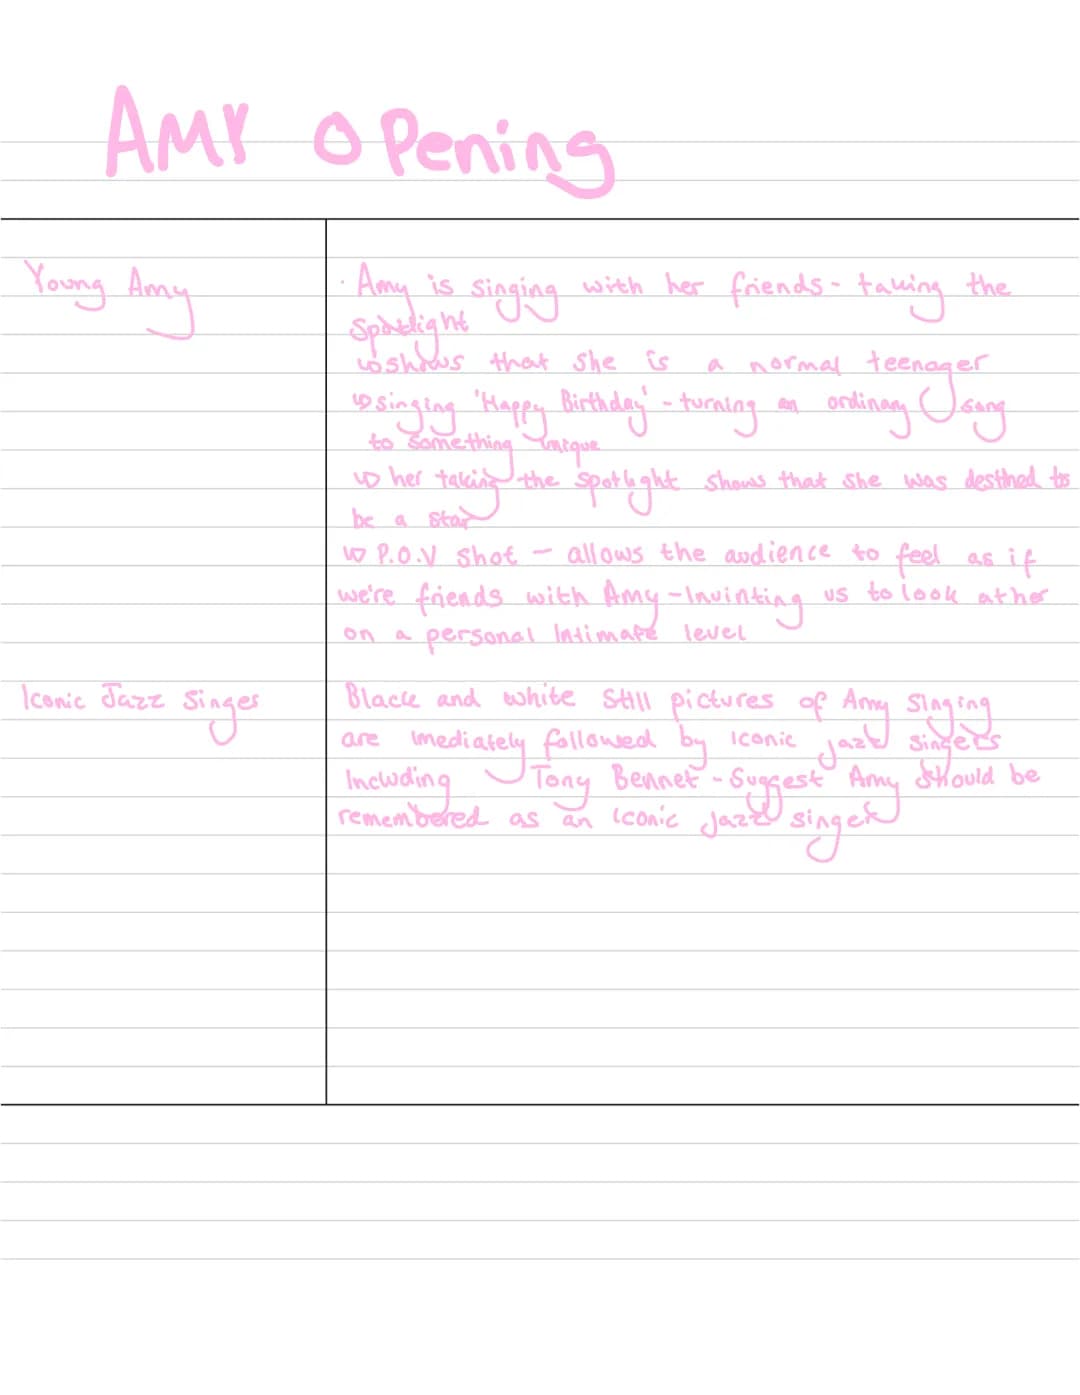 AMY Opening
Young Amy
· Amy is singing with her friends - taking the
spotlight
↳ shows that she is a normal teenager
↳ singing 'Happy Birthday' - turning an ordinary song
to something unique
↳ her taking the spotlight shows that she was destined to
be a star
↳ P.O.V shot - allows the audience to feel as if
we're friends with Amy - Invinting us to look at her
on a personal Intimate level
Iconic Jazz Singer
Black and white still pictures of Amy Singing
are imediately followed by Iconic jazz singers
Including Tony Bennet - Suggest Amy should be
remembered as an iconic jazz singer